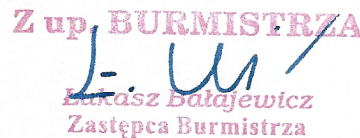 Z up. BURMISTRZA
Łukasz Bałajewicz
Zastępca Burmistrza